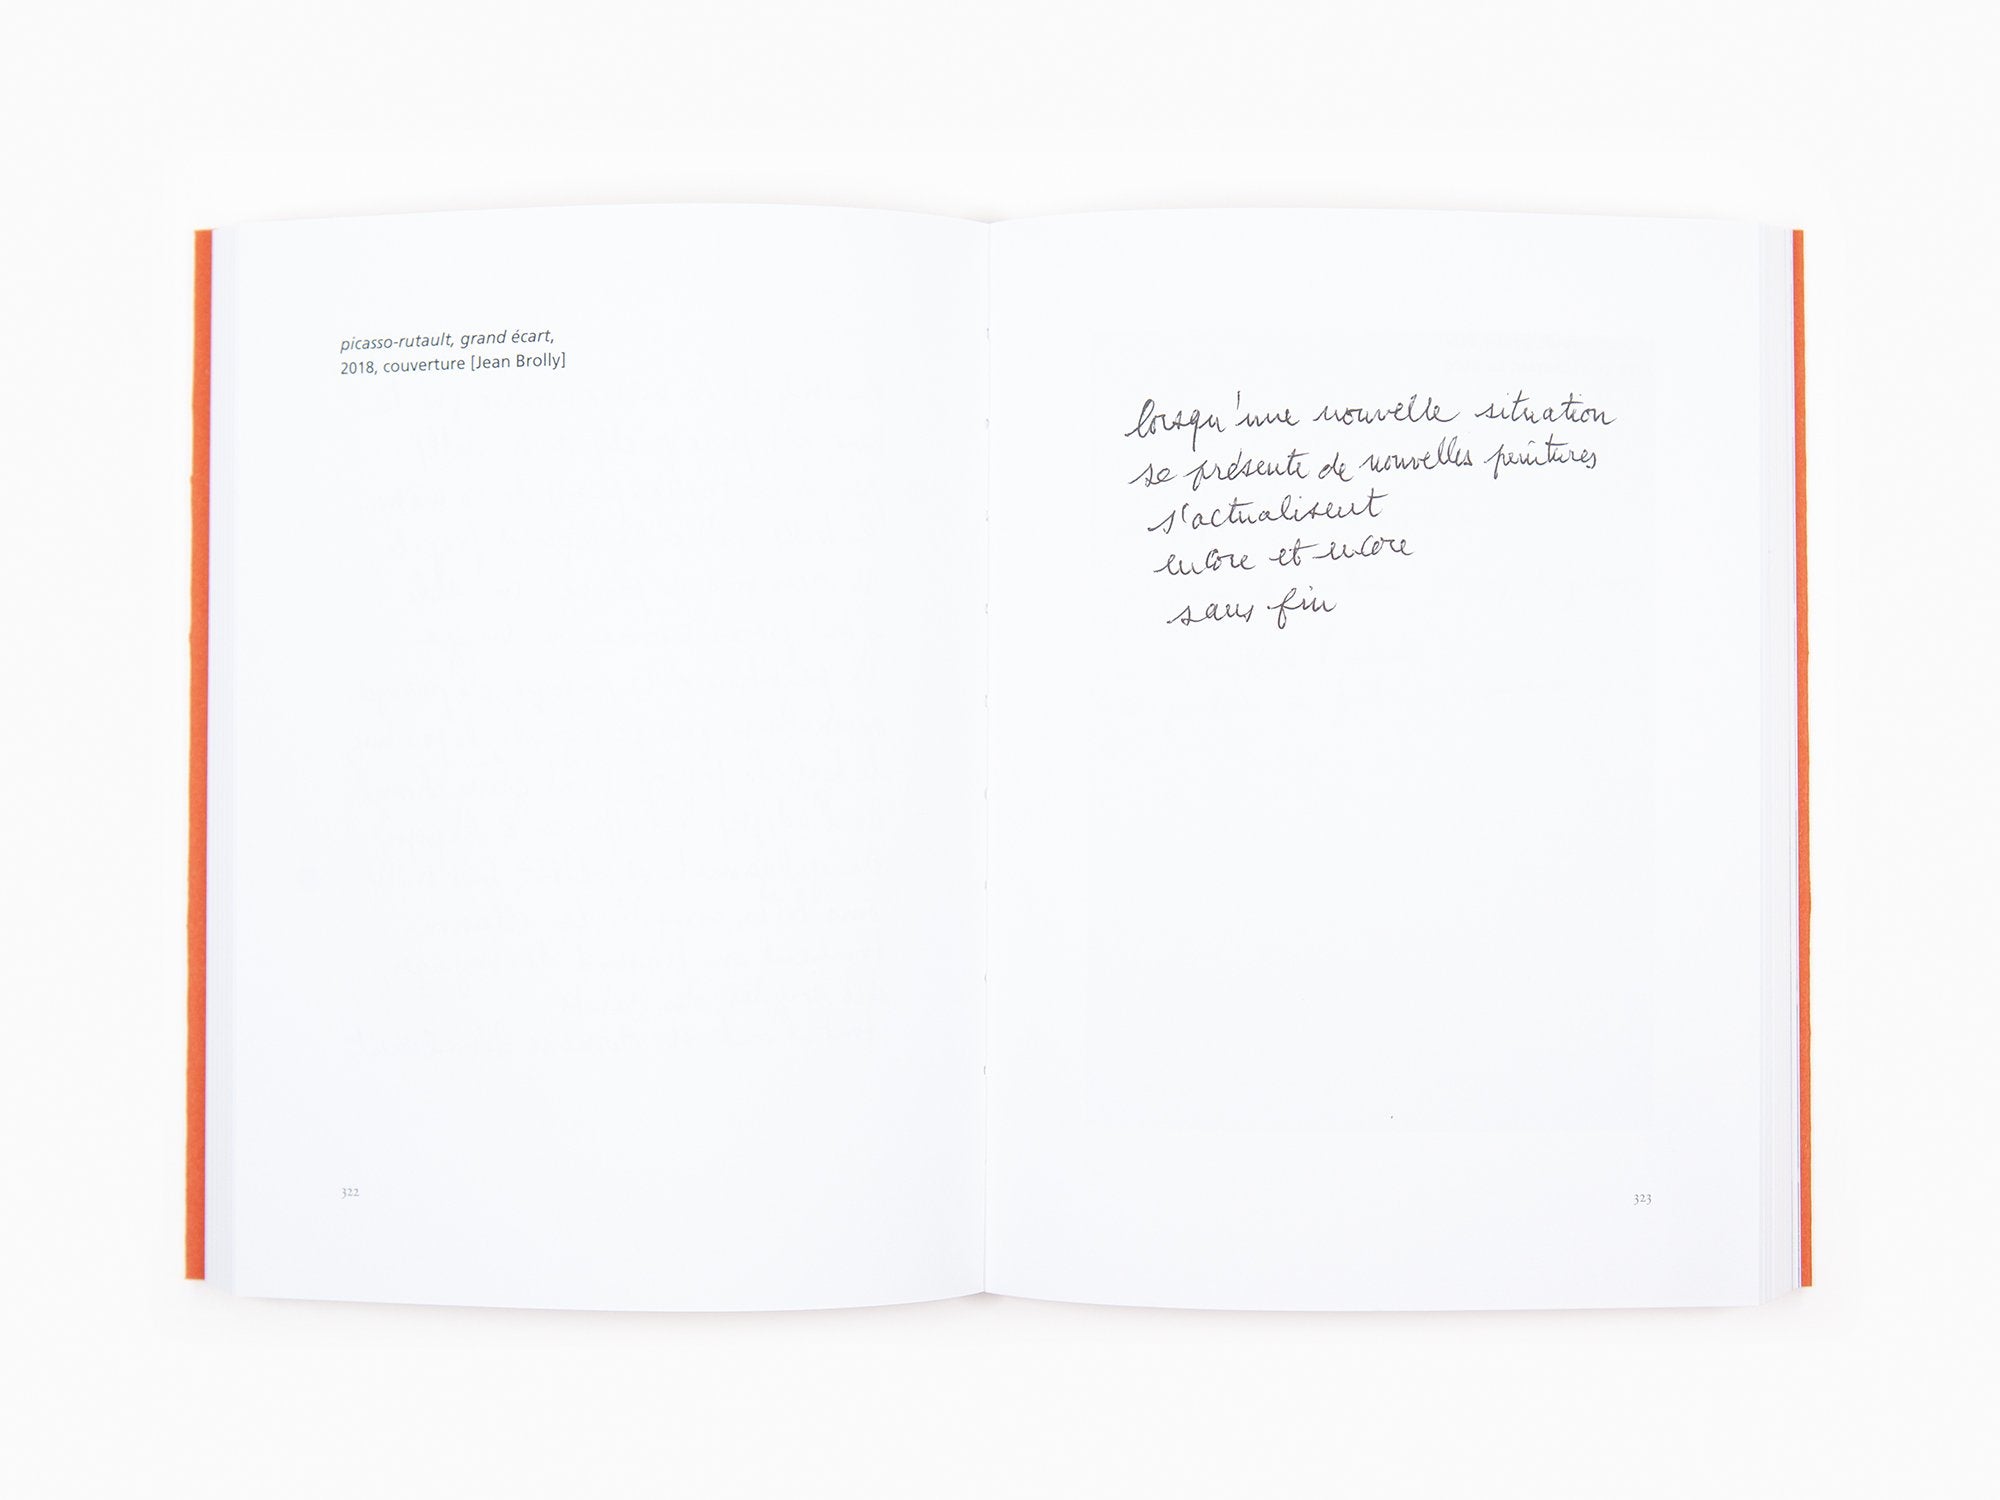 picasso-rutault, grand écart,
2018, couverture [Jean Brolly]
322
lorsqu'une nouvelle situation
se présente de nouvelles peintures
s'actualisent
encore et encore
sans fin
323